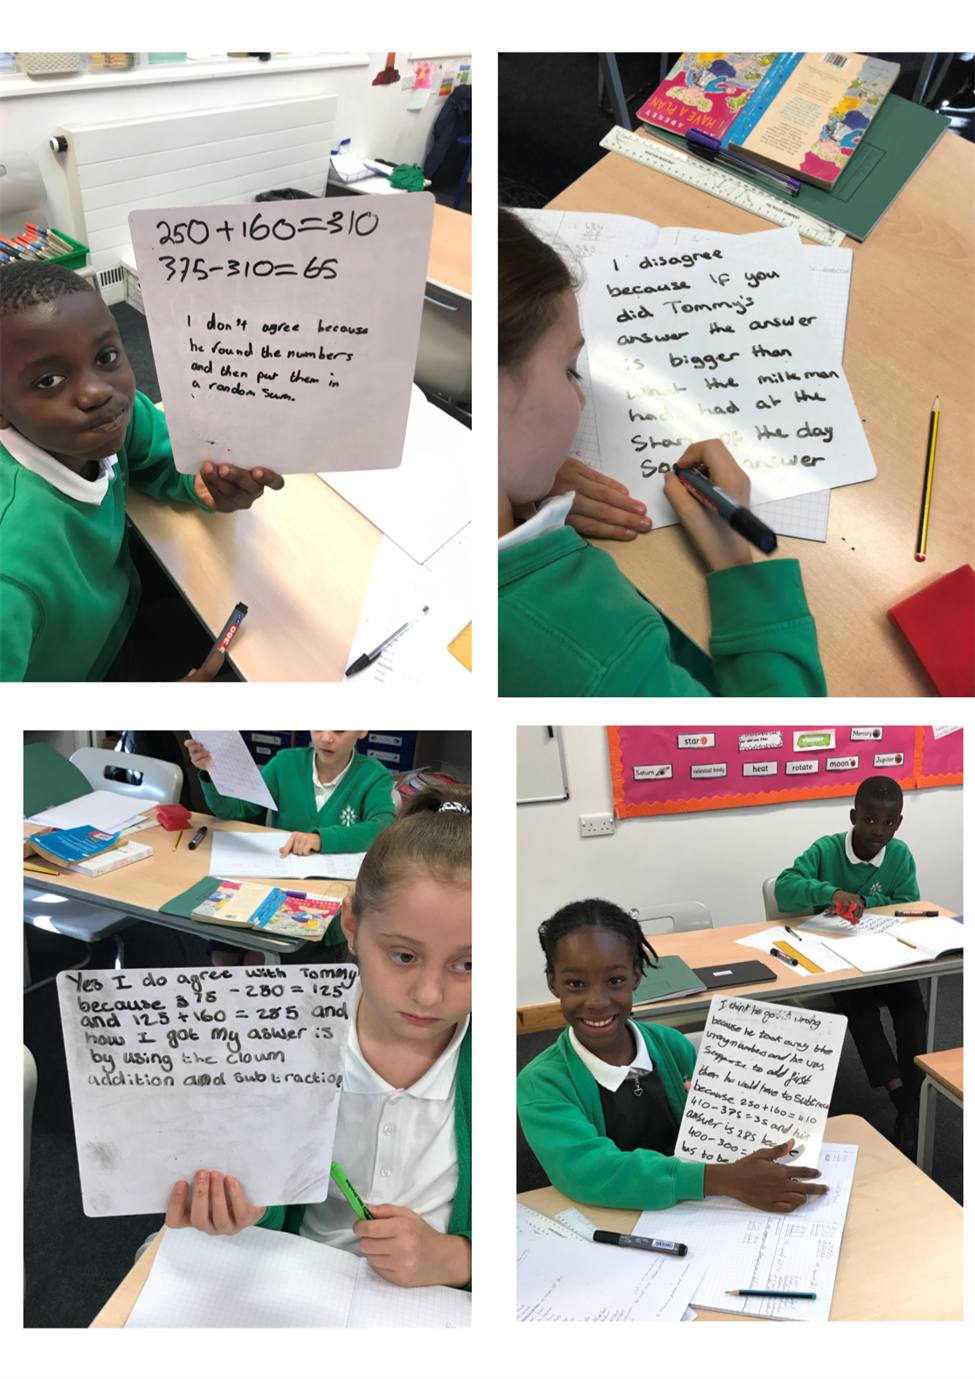 250+160=310
375-310=65
I don't agree because
he round the numbers
and then put them in
a random sum.
380
ADENEY
I HAVE A PLAN
I disagree
because if you
did Tommy's
answer the answer
is bigger than
what the milkman
had had at the
Start of the day
So answer
Yes I do agree with Tommy
because 375 - 250 = 125
and 125 + 160 = 285 and
how I got my aswer is
by using the clown
addition and subtraction
star
Mercury
Saturn
celestial body
heat
rotate
moon
Jupiter
I think he got it wrong
because he took away the
wrong numbers and he was
Suppose to add first
then he would have to Subtract
because 250+160=410
410-375=35 and his
answer is 285
400-300=
has to be